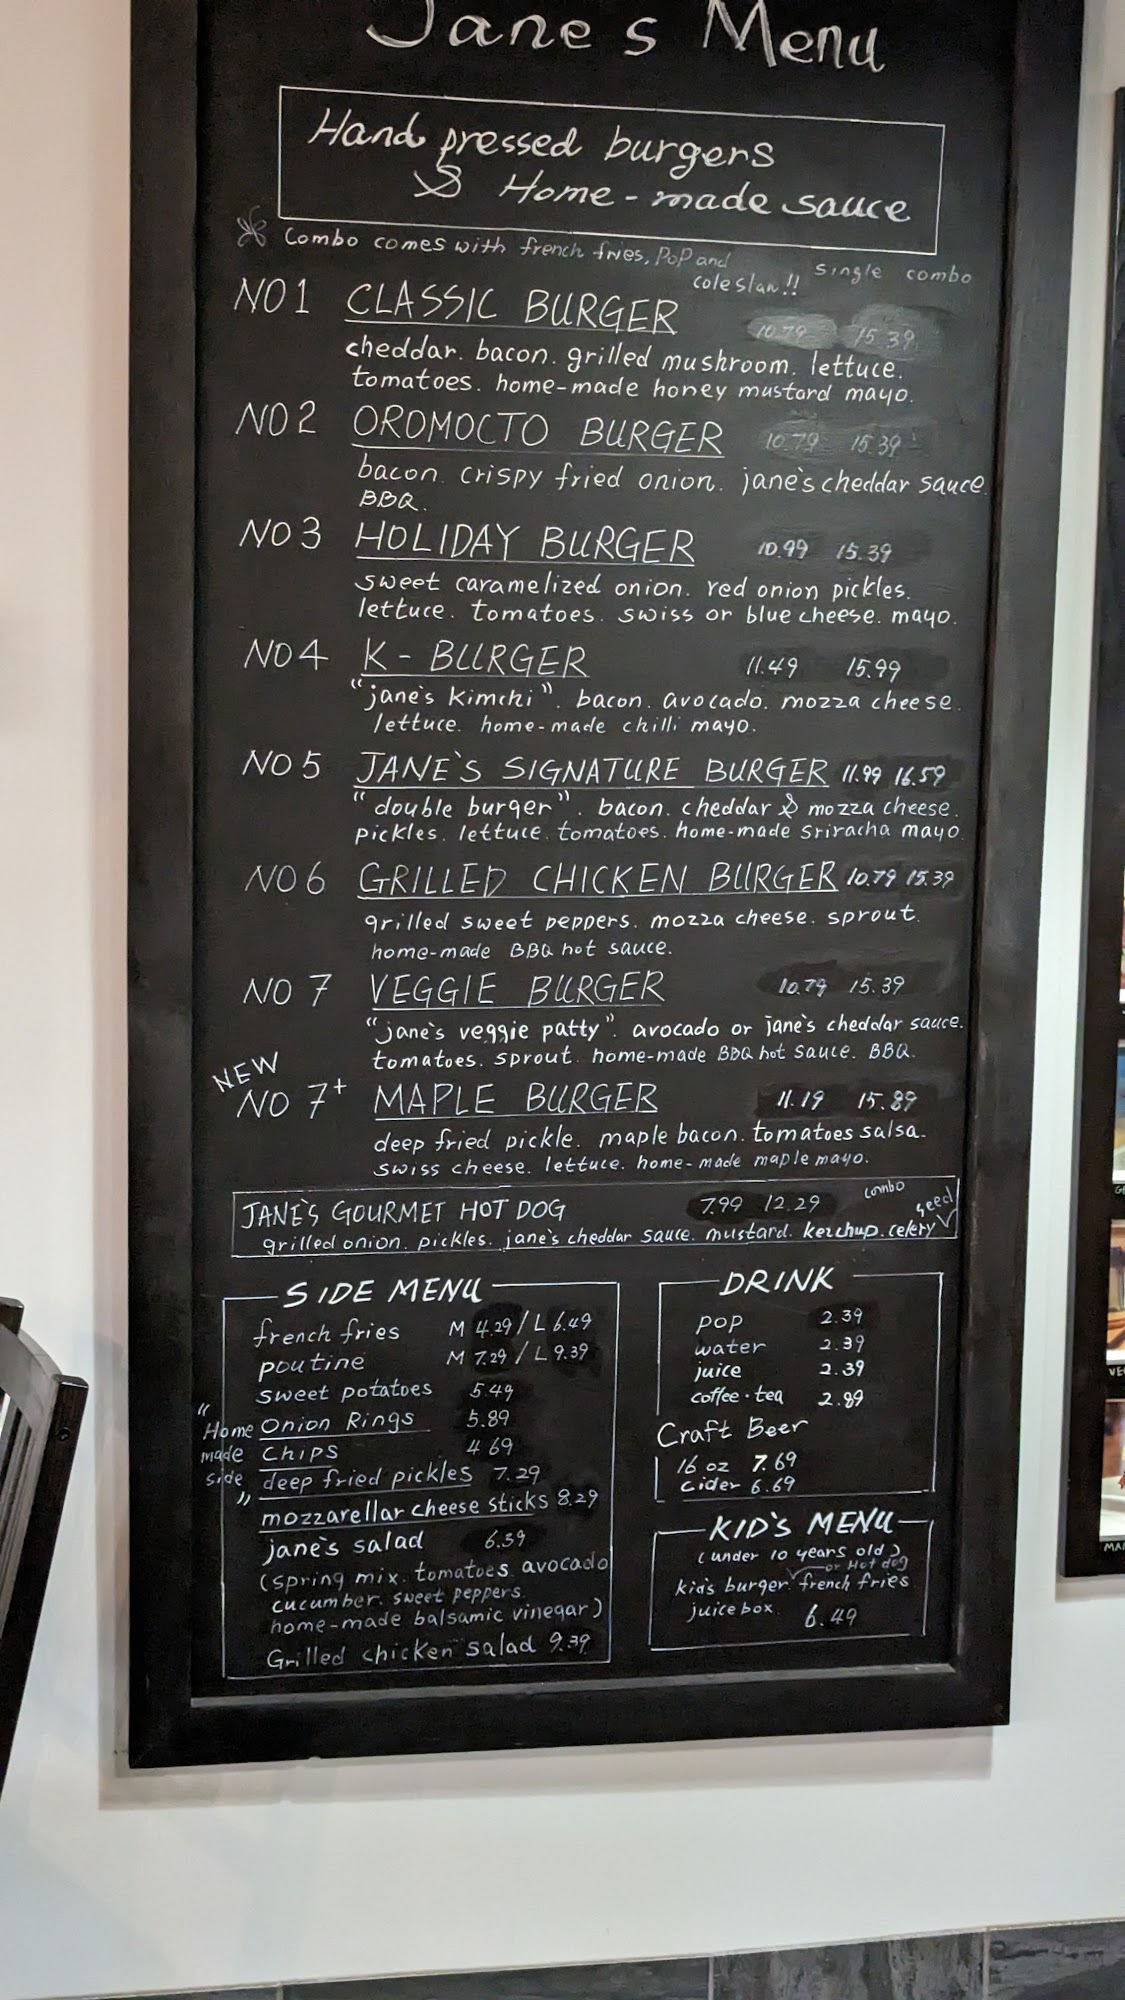 Jane's Menu
Hand pressed burgers
& Home-made sauce
Combo comes with french fries, Pop and
coleslaw!!
single combo
NO 1 CLASSIC BURGER 10.79 15.39
cheddar. bacon. grilled mushroom. lettuce.
tomatoes. home-made honey mustard mayo.
NO 2 OROMOCTO BURGER 10.79 15.39
bacon. crispy fried onion. jane's cheddar sauce
BBQ.
NO 3 HOLIDAY BURGER 10.99 15.39
sweet caramelized onion. red onion pickles.
lettuce. tomatoes. swiss or blue cheese. mayo.
NO 4 K-BURGER 11.49 15.99
"jane's kimchi". bacon. avocado. mozza cheese.
lettuce. home-made chilli mayo.
NO 5 JANE'S SIGNATURE BURGER 11.99 16.59
"double burger". bacon. cheddar & mozza cheese.
pickles. lettuce. tomatoes. home-made sriracha mayo
NO 6 GRILLED CHICKEN BURGER 10.79 15.39
grilled sweet peppers. mozza cheese. sprout.
home-made BBQ hot sauce.
NO 7 VEGGIE BURGER 10.79 15.39
"jane's veggie patty". avocado or jane's cheddar sauce.
tomatoes. sprout. home-made BBQ hot sauce. BBQ.
NEW
NO 7+ MAPLE BURGER 11.19 15.89
deep fried pickle. maple bacon. tomatoes salsa.
swiss cheese. lettuce. home-made maple mayo.
combo
JANE'S GOURMET HOT DOG 7.99 12.29
seed
grilled onion. pickles. jane's cheddar sauce. mustard. ketchup. celery
SIDE MENU
french fries M 4.29 / L 6.49
poutine M 7.29 / L 9.39
sweet potatoes 5.49
"Home made side"
Onion Rings 5.89
Chips 4.69
deep fried pickles 7.29
mozzarellar cheese sticks 8.29
jane's salad 6.39
(spring mix. tomatoes. avocado
cucumber. sweet peppers.
home-made balsamic vinegar)
Grilled chicken salad 9.39
DRINK
pop 2.39
water 2.39
juice 2.39
coffee · tea 2.89
Craft Beer
16 oz 7.69
cider 6.69
KID'S MENU
(under 10 years old)
or Hot dog
kid's burger. french fries
juice box. 6.49